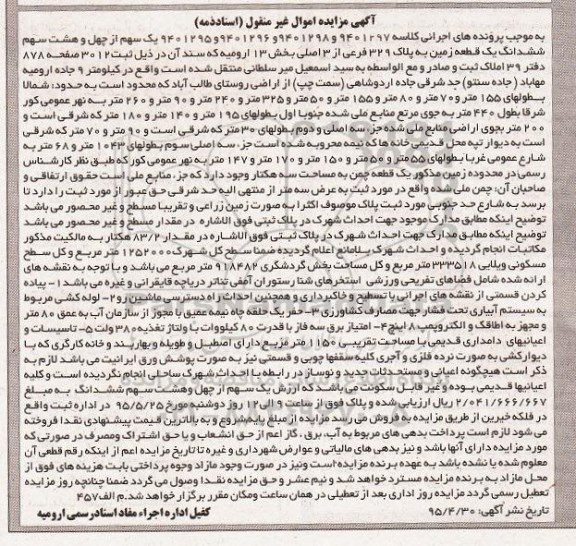 آگهی مزایده اموال غیر منقول (اسنادذمه)
به موجب پرونده های اجرائی کلاسه ۹۴۰۱۲۹۷ و ۹۴۰۱۲۹۸ و ۹۴۰۱۲۹۶ و ۹۴۰۱۲۹۵ یک سهم از چهل و هشت سهم
ششدانگ یک قطعه زمین به پلاک ۳۲۹ فرعی از ۳ اصلی بخش ۱۳ ارومیه که سند آن در ذیل ثبت ۳۰۱۲ صفحه ۸۷۸
دفتر ۳۹ املاک ثبت و صادر و مع الواسطه به سید اسمعیل میر سلطانی منتقل شده است واقع در کیلومتر ۹ جاده ارومیه
مهاباد ( جاده سنتو) جد شرقی جاده اردوشاهی (سمت چپ) از اراضی روستای طالب آباد که محدود است به حدود: شمالا
بطولهای ۱۵۵ متر و ۷۰ متر و ۸۰ متر و ۱۵۵ متر و ۵۰ متر و ۳۲۵ متر و ۲۴۰ متر و ۹۰ متر و ۲۶۰ متر به نهر عمومی کور
شرقا بطول ۴۴۰ متر به جوی مرتع منابع ملی شده جنوبا اول بطولهای ۱۹۵ متر و ۱۴۰ متر و ۱۸۰ متر که شرقی است و
۲۰۰ متر بجوی اراضی منابع ملی شده جز. سه اصلی و دوم بطولهای ۳۰ متر که شرقی است و ۹۰ متر و ۷۰ متر که شرقی
است به دیوار تپه محل قدیمی خانه ها که نیمه مخروبه شده است جز. سه اصلی سوم بطولهای ۱۰۴۳ متر و ۶۸ متر به
شارع عمومی غربا بطولهای ۵۵ متر و ۵۰ متر و ۱۵۰ متر و ۱۷۰ متر و ۱۴۷ متر به نهر عمومی کور که طبق نظر کارشناس
رسمی در محدوده زمین مذکور یک قطعه چمن به مساحت سه هکتار وجود دارد که جز. منابع ملی است حقوق ارتفاقی و
صاحبان آن: چمن ملی شده واقع در مورد ثبت به عرض سه متر از منتهی الیه حد شرقی حق عبور از مورد ثبت را دارد تا
برسد به شارع حد جنوبی مورد ثبت پلاک موصوف اکثرا به صورت زمین زراعی و تقریبا مسطح و غیر محصور می باشد
توضیح اینکه مطابق مدارک موجود جهت احداث شهرک در پلاک ثبتی فوق الاشاره در مقدار مسطح و غیر محصور می باشد
توضیح اینکه مطابق مدارک جهت احداث شهرک در پلاک ثبتی فوق الاشاره در مقدار ۸۳/۲ هکتار به مالکیت مذکور
مکاتبات انجام گردیده و احداث شهرک بلامانع اعلام گردیده ضمنا سطح کل شهرک ۱۲۵۲۰۰۰ متر مربع و کل سطح
مسکونی ویلایی ۳۳۳۵۱۸ متر مربع و کل مساحت بخش گردشگری ۹۱۸۴۸۲ متر مربع می باشد و با توجه به نقشه های
ارائه شده شامل فضاهای تفریحی ورزشی استخرهای شنا رستوران آمفی تئاتر دریاچه قایقرانی و غیره می باشد ۱- پیاده
کردن قسمتی از نقشه های اجرائی با تسطیح و خاکبرداری و همچنین احداث راه دسترسی ماشین رو ۲- لوله کشی مربوط
به سیستم آبیاری تحت فشار جهت مصارف کشاورزی ۳- حفر یک حلقه چاه نیمه عمیق با مجوز از سازمان آب به عمق ۸۰ متر
و مجهز به اطاقک و الکتروپمپ ۸ اینچ ۴- امتیاز برق سه فاز با قدرت ۸۰ کیلووات با ولتاژ تغذیه ۳۸۰ ولت ۵- تاسیسات و
اعیانیهای دامداری قدیمی با مساحت تقریبی ۱۱۵۰ متر مربع دارای اصطبل و طویله و بهاربند و خانه کارگری که با
دیوارکشی به صورت نرده فلزی و آجری کلیه سقفها چوبی و قسمتی نیز به صورت پوشش ورق ایرانیت می باشد لازم به
ذکر است هیچگونه اعیانی و مستحدثات جدید و نوساز در رابطه با احداث شهرک ساحلی انجام نگردیده است و کلیه
اعیانیها قدیمی بوده و غیر قابل سکونت می باشد که ارزش یک سهم از چهل و هشت سهم ششدانگ به مبلغ
۲/۰۴۱/۶۶۶/۶۶۷ ریال ارزیابی شده و پلاک فوق از ساعت ۹ الی ۱۲ روز دوشنبه مورخ ۹۵/۵/۲۵ در اداره ثبت واقع
در فلکه خیرین از طریق مزایده به فروش می رسد مزایده از مبلغ پایه شروع و به بالاترین قیمت پیشنهادی نقدا فروخته
می شود لازم است پرداخت بدهی های مربوط به آب، برق، گاز اعم از حق انشعاب و یا حق اشتراک و مصرف در صورتی که
مورد مزایده دارای آنها باشد و نیز بدهی های مالیاتی و عوارض شهرداری و غیره تا تاریخ مزایده اعم از اینکه رقم قطعی آن
معلوم شده یا نشده باشد به عهده برنده مزایده است و نیز در صورت وجود مازاد وجوه پرداختی بابت هزینه های فوق از
محل مازاد به برنده مزایده مسترد خواهد شد و نیم عشر و حق مزایده نقدا وصول می گردد ضمنا چنانچه روز مزایده
تعطیل رسمی گردد مزایده روز اداری بعد از تعطیلی در همان ساعت و مکان مقرر برگزار خواهد شد.م الف ۴۵۷
تاریخ نشر آگهی: ۹۵/۴/۳۰ کفیل اداره اجراء مفاد اسناد رسمی ارومیه